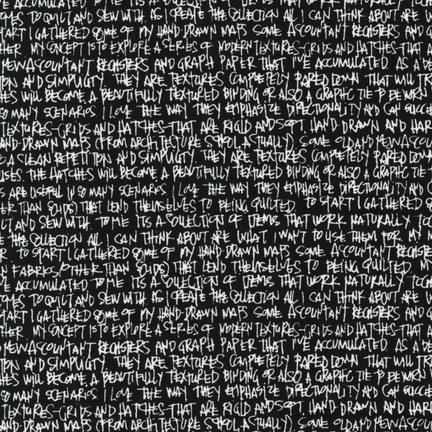 ACCUMULATED TO ME ITS A
TO QUILT AND SEW WITH. AS I CREATE THE COLLECTION ALL I CAN THINK ABOUT ARE
START I GATHERED SOME OF MY HAND DRAWN MAPS SOME ACCOUNTANT REGISTERS AND
HER MY CONCEPT IS TO EXPLORE A SERIES OF MODERN TEXTURES-GRIDS AND HATCHES-THAT
NEW ACCOUNTANT REGISTERS AND GRAPH PAPER THAT I'VE ACCUMULATED AS A
TION AND SIMPLICITY THEY ARE TEXTURES COMPLETELY PARED DOWN THAT WILL
HES WILL BECOME A BEAUTIFULLY TEXTURED BINDING OR ALSO A GRAPHIC TIE
SO MANY SCENARIOS I LOVE THE WAY THEY EMPHASIZE DIRECTIONALITY AND CAN
TEXTURES-GRIDS AND HATCHES-THAT ARE RIGID AND SOFT, HAND DRAWN AND HARD
AND DRAWN MAPS (FROM ARCHITECTURE SCHOOL ACTUALLY) SOME OLD AND NEW
E A CLEAN REPETITION AND SIMPLICITY. THEY ARE TEXTURES COMPLETELY PARED DOWN
USES. THE HATCHES WILL BECOME A BEAUTIFULLY TEXTURED BINDING OR ALSO A GRAPHIC TIE
S ARE USEFUL IN SO MANY SCENARIOS I LOVE THE WAY THEY EMPHASIZE DIRECTIONALITY AND
ER THAN SOLIDS) THAT LEND THEMSELVES TO BEING QUILTED. TO START I GATHERED SO
AND SEW WITH. TO ME ITS A COLLECTION OF ITEMS THAT WORK NATURALLY
E THE COLLECTION ALL I CAN THINK ABOUT ARE WHAT I WANT TO USE THEM FOR MY
TO START I GATHERED SOME OF MY HAND DRAWN MAPS SOME ACCOUNTANT REG
N FABRICS (OTHER THAN SOLIDS) THAT LEND THEMSELVES TO BEING QUILTED
E ACCUMULATED TO ME ITS A COLLECTION OF ITEMS THAT WORK NATURALLY
TO QUILT AND SEW WITH. AS I CREATE THE COLLECTION ALL I CAN THINK ABOUT ARE
START I GATHERED SOME OF MY HAND DRAWN MAPS SOME ACCOUNTANT REGISTERS AND
HER MY CONCEPT IS TO EXPLORE A SERIES OF MODERN TEXTURES-GRIDS AND HATCHES-THAT
NEW ACCOUNTANT REGISTERS AND GRAPH PAPER THAT I'VE ACCUMULATED AS A
TION AND SIMPLICITY THEY ARE TEXTURES COMPLETELY PARED DOWN THAT WILL
HES WILL BECOME A BEAUTIFULLY TEXTURED BINDING OR ALSO A GRAPHIC TIE
SO MANY SCENARIOS I LOVE THE WAY THEY EMPHASIZE DIRECTIONALITY AND CAN
TEXTURES-GRIDS AND HATCHES-THAT ARE RIGID AND SOFT, HAND DRAWN AND HARD
AND DRAWN MAPS (FROM ARCHITECTURE SCHOOL ACTUALLY) SOME OLD AND NEW